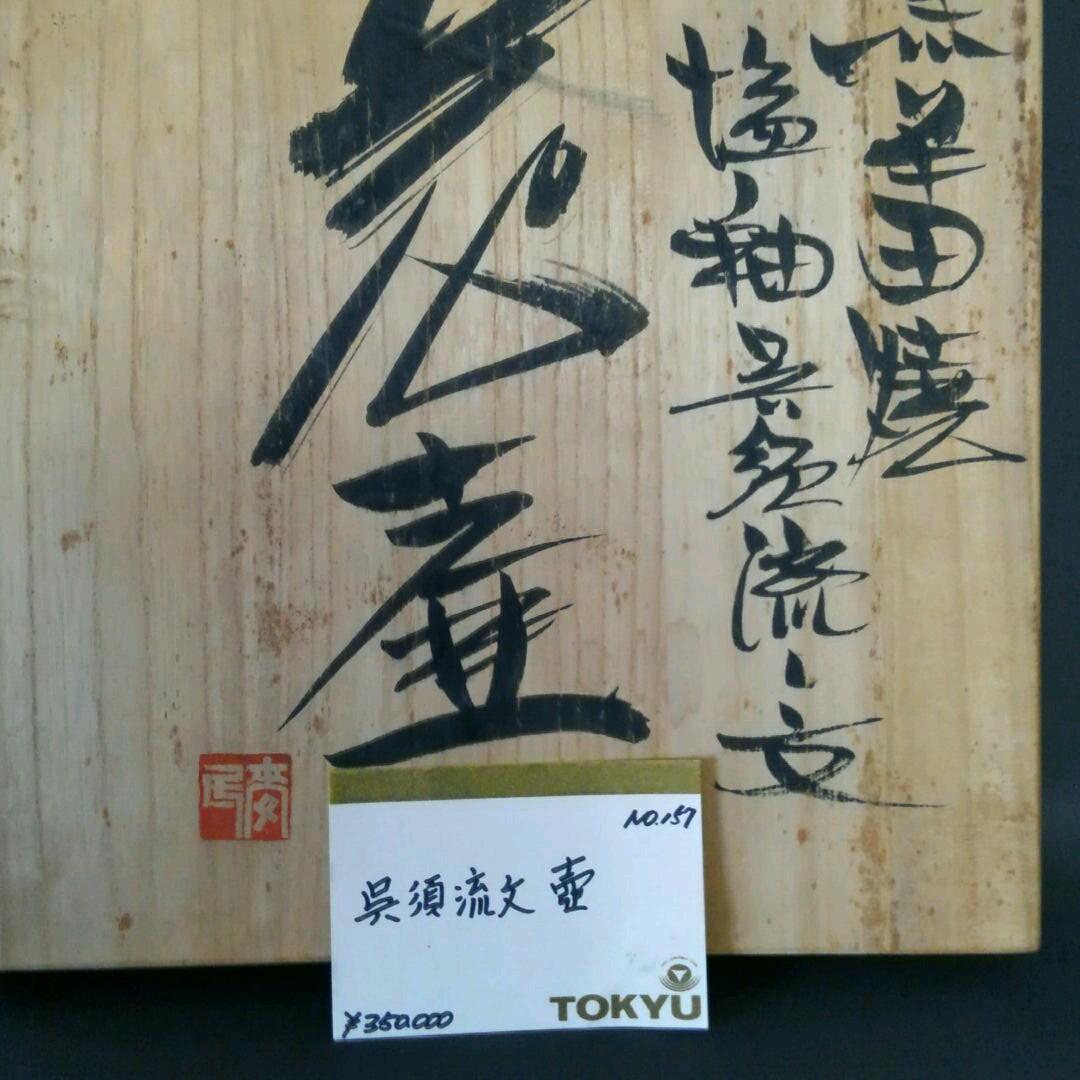 黒牟田焼
塩釉呉須流し文
花壷
NO.157
呉須流文壺
¥350.000
TOKYU